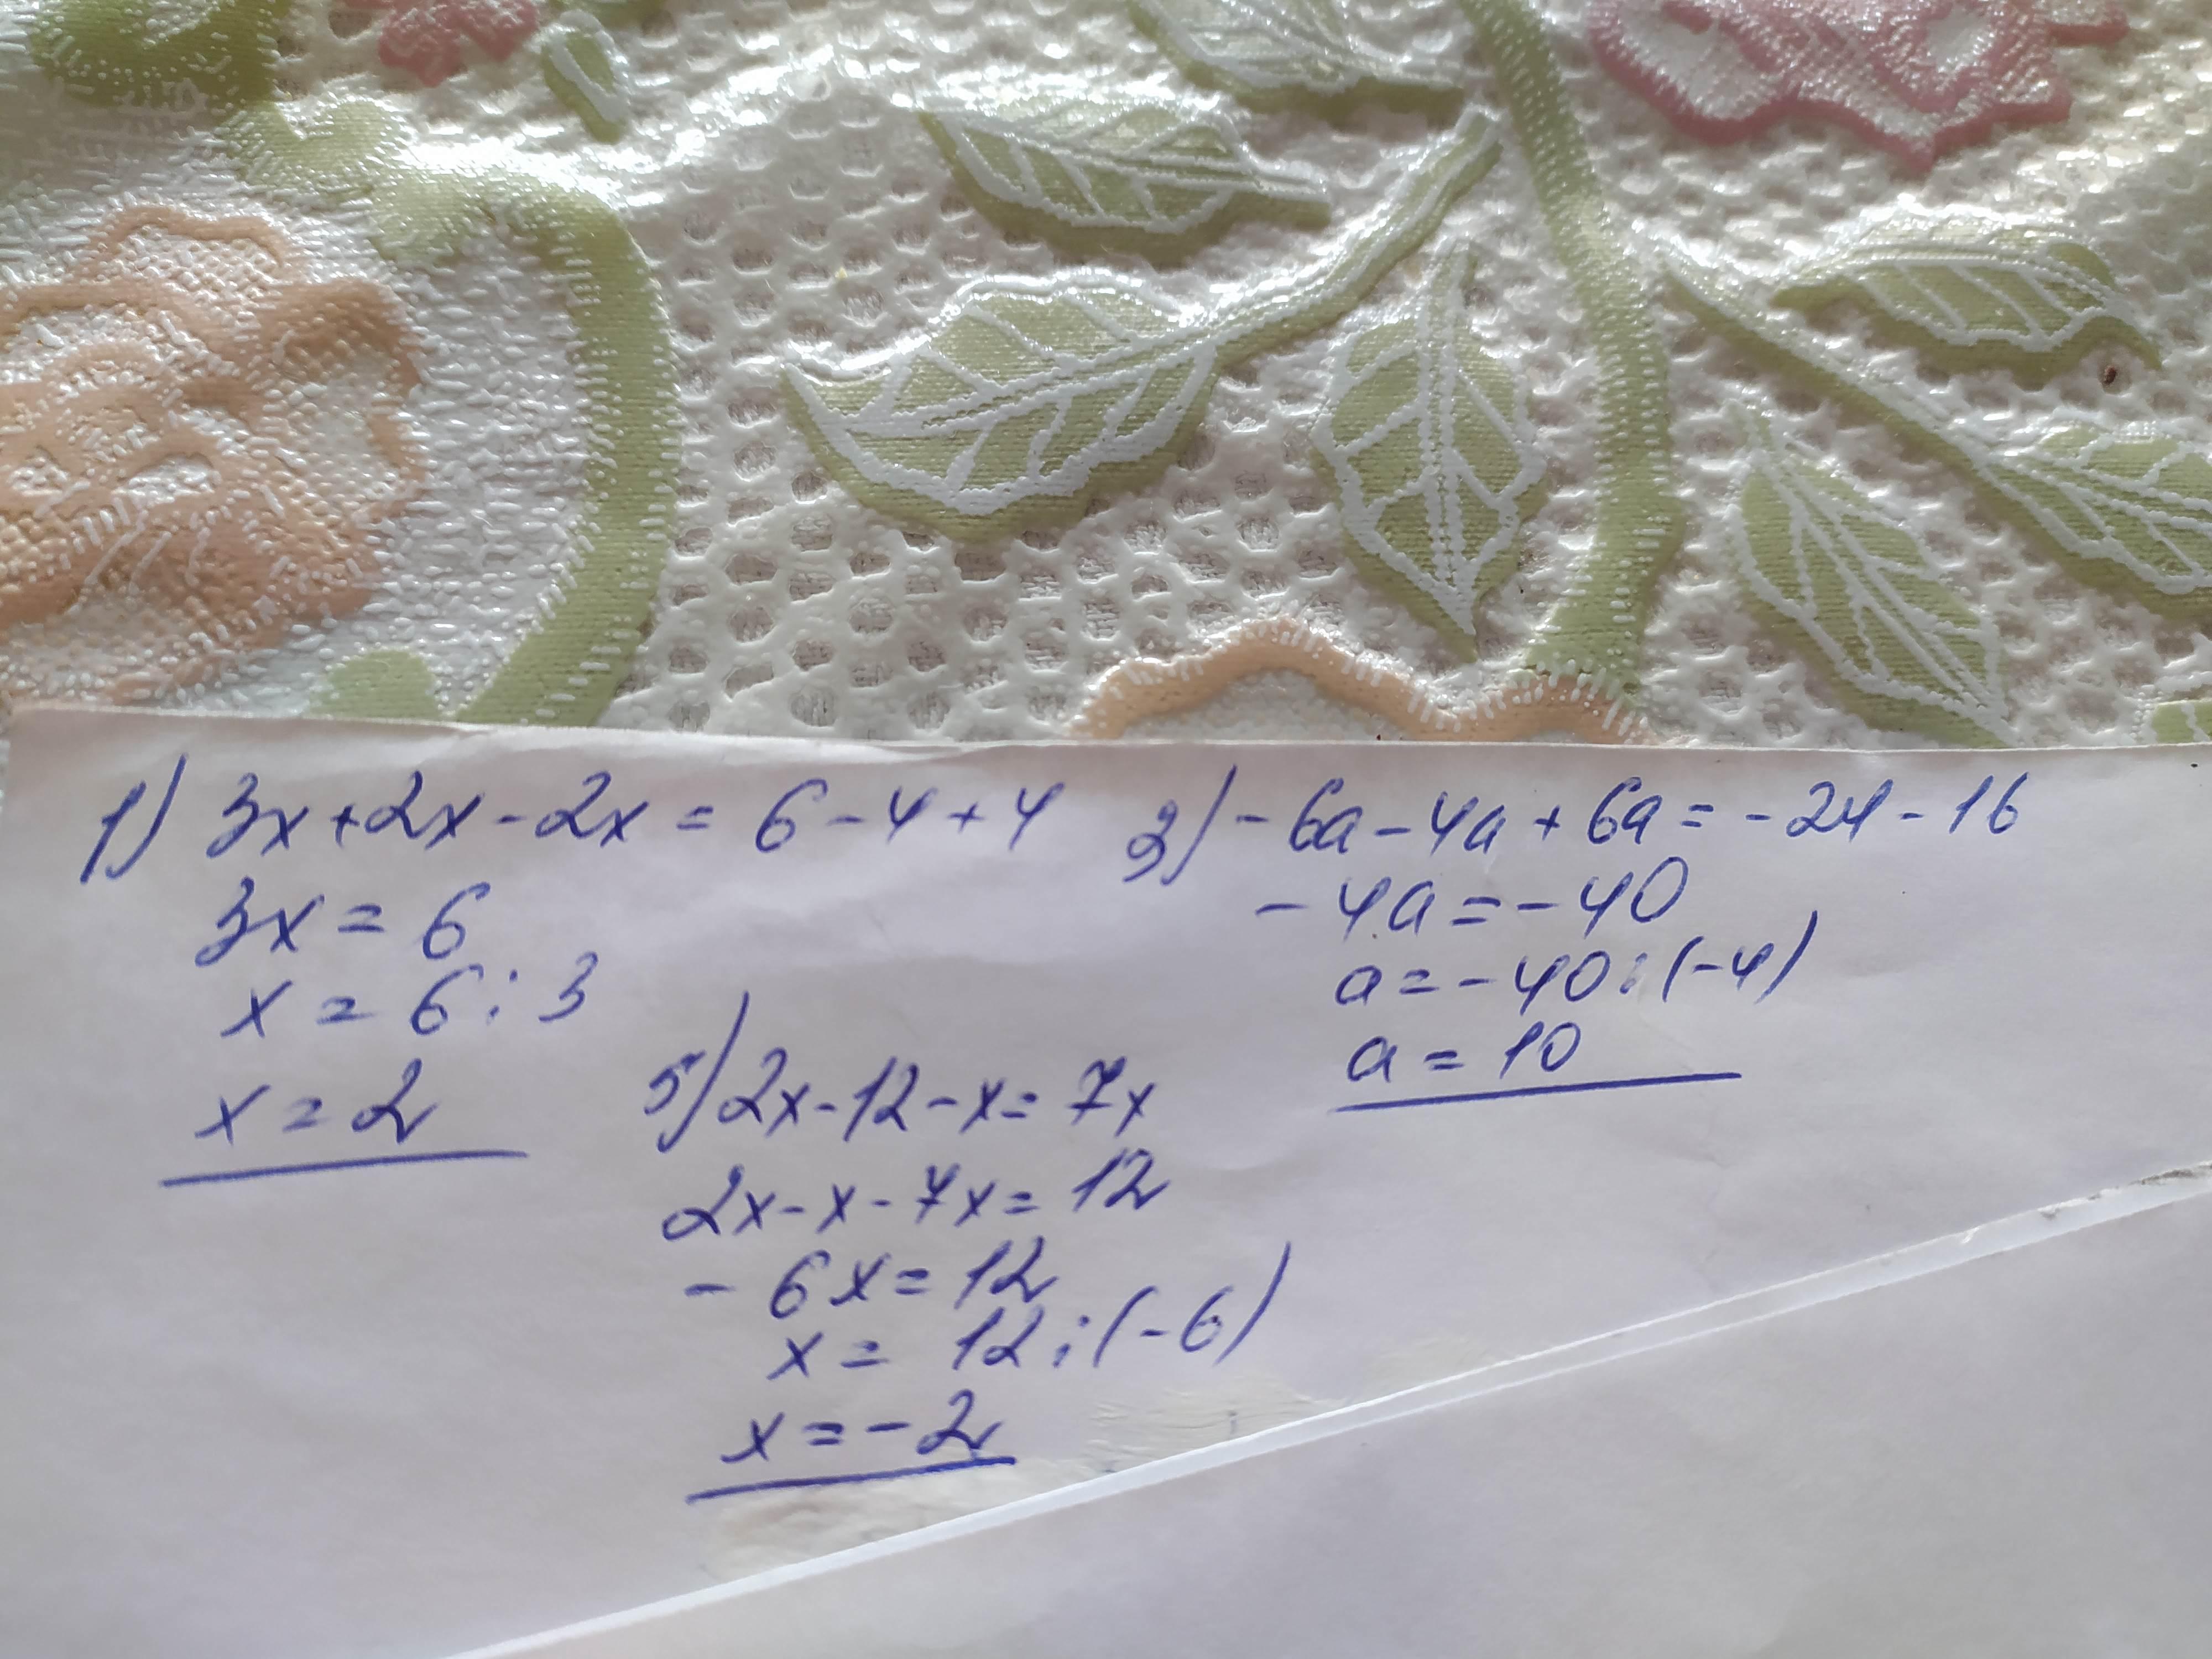 1) 3x+2x-2x = 6-4+4
3x = 6
x = 6:3
x = 2
3) -6a-4a+6a=-24-16
-4a=-40
a=-40:(-4)
a=10
5) 2x-12-x=7x
2x-x-7x=12
-6x=12
x=12:(-6)
x=-2